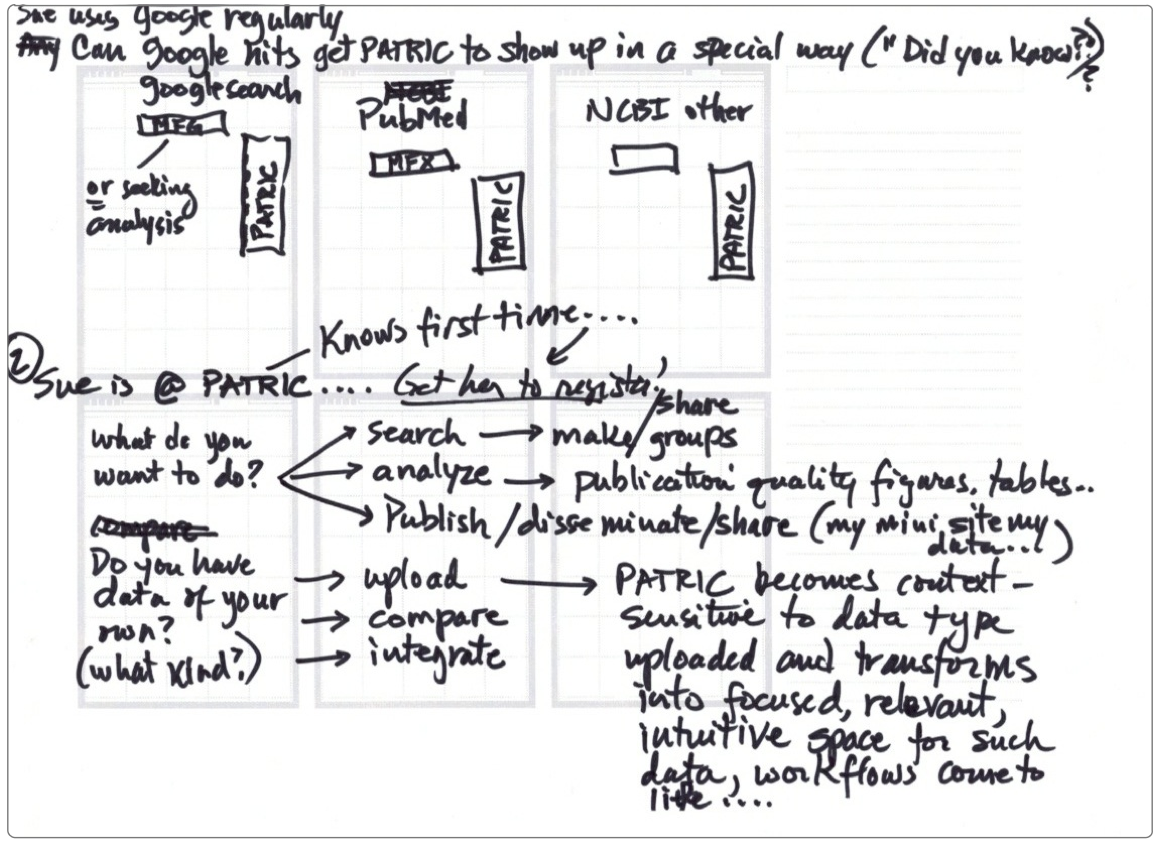 Sue uses Google regularly
Any Can google hits get PATRIC to show up in a special way ("Did you know?")
?
google search
MFG
or seeking
analysis
PATRIC
NCBI
PubMed
MFX
PATRIC
NCBI other
PATRIC
Knows first time.....
2 Sue is @ PATRIC .... Get her to register!
what do you
want to do?
search → make/share groups
analyze → publication quality figures, tables...
Publish/disseminate/share (my mini site my data...)
compare
Do you have
data of your
own?
(what kind?)
upload
compare
integrate
PATRIC becomes context-
sensitive to data type
uploaded and transforms
into focused, relevant,
intuitive space for such
data, workflows come to
life ....